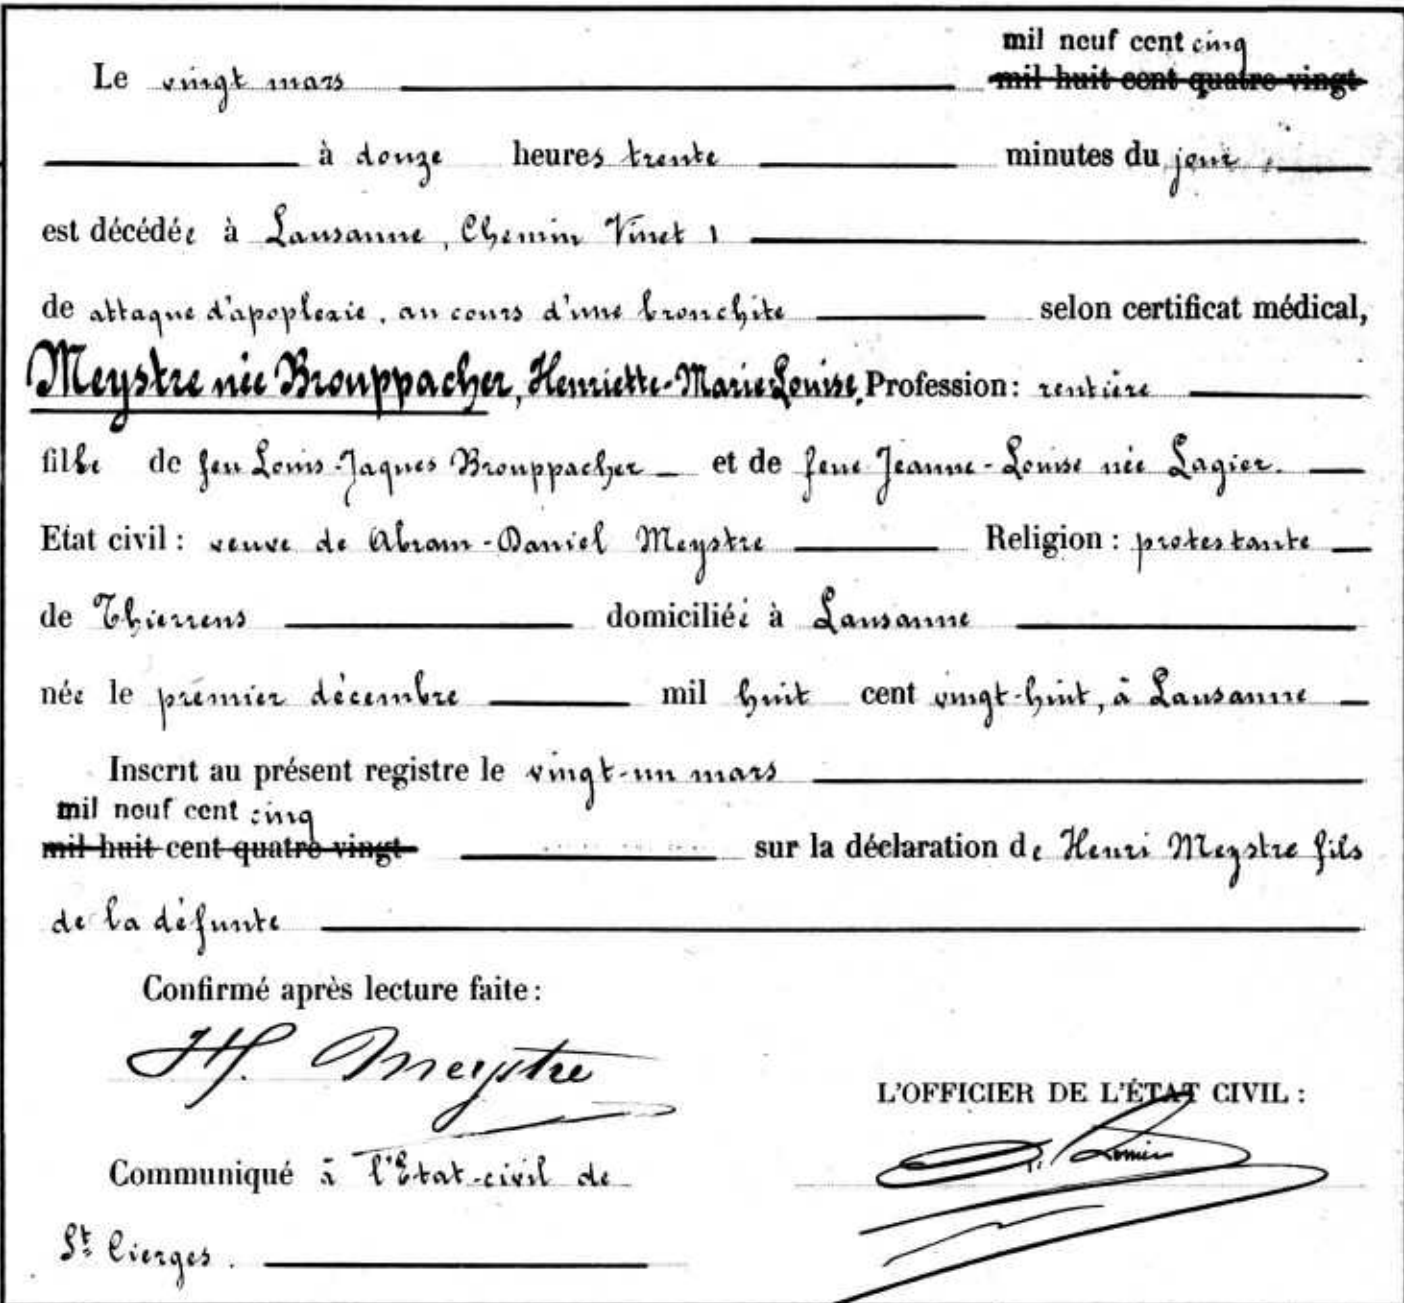 mil neuf cent cinq
Le vingt mars mil huit cent quatre vingt
à douze heures trente minutes du jour
est décédée à Lausanne, Chemin Vinet 1
de attaque d'apoplexie, au cours d'une bronchite selon certificat médical,
Meystre née Brouppacher, Henriette-Marie-Louise, Profession: rentière
fille de feu Louis-Jaques Brouppacher et de feue Jeanne-Louise née Lagier.
Etat civil: veuve de Abram-Daniel Meystre Religion: protestante
de Thierrens domiciliée à Lausanne
née le premier décembre mil huit cent vingt-huit, à Lausanne
Inscrit au présent registre le vingt-un mars
mil neuf cent cinq
mil huit cent quatre vingt sur la déclaration de Henri Meystre fils
de la défunte
Confirmé après lecture faite:
H. Meystre
L'OFFICIER DE L'ÉTAT CIVIL:
Communiqué à l'Etat-civil de
St Cierges.